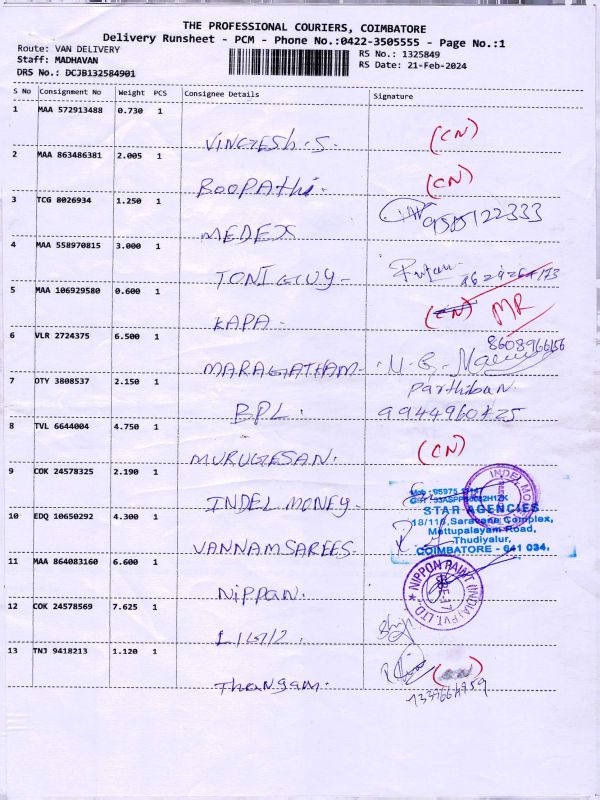 THE PROFESSIONAL COURIERS, COIMBATORE
Delivery Runsheet - PCM - Phone No.:0422-3505555 - Page No.:1
Route: VAN DELIVERY
RS No.: 1325849
Staff: MADHAVAN
RS Date: 21-Feb-2024
DRS No.: DCJB132584901
S No Consignment No Weight PCS Consignee Details Signature
1 MAA 572913488 0.730 1
VINGESH.S. (CN)
2 MAA 863486381 2.005 1
BOOPAthi. (CN)
3 TCG 8026934 1.250 1
MEDEX 9585122333
4 MAA 558970815 3.000 1
TONI GUY
5 MAA 106929580 0.600 1
KAPA (CN) MR
6 VLR 2724375 6.500 1
8608966156
MARAGATHAM
7 OTY 3808537 2.150 1
Parthiban.
BPL. 9944960425
8 TVL 6644004 4.750 1
MURUGESAN. (CN)
9 COK 24578325 2.190 1
INDEL MONEY
STAR AGENCIES
18/110, Saravana Complex,
Mettupalayam Road,
Thudiyalur,
COIMBATORE - 641 034.
INDEL MONEY
10 EDQ 10650292 4.300 1
VANNAMSAREES
11 MAA 864083160 6.600 1
Nippan.
NIPPON PAINT (INDIA) PVT. LTD.
12 COK 24578569 7.625 1
13 TNJ 9418213 1.120 1
Thangam. (CN)